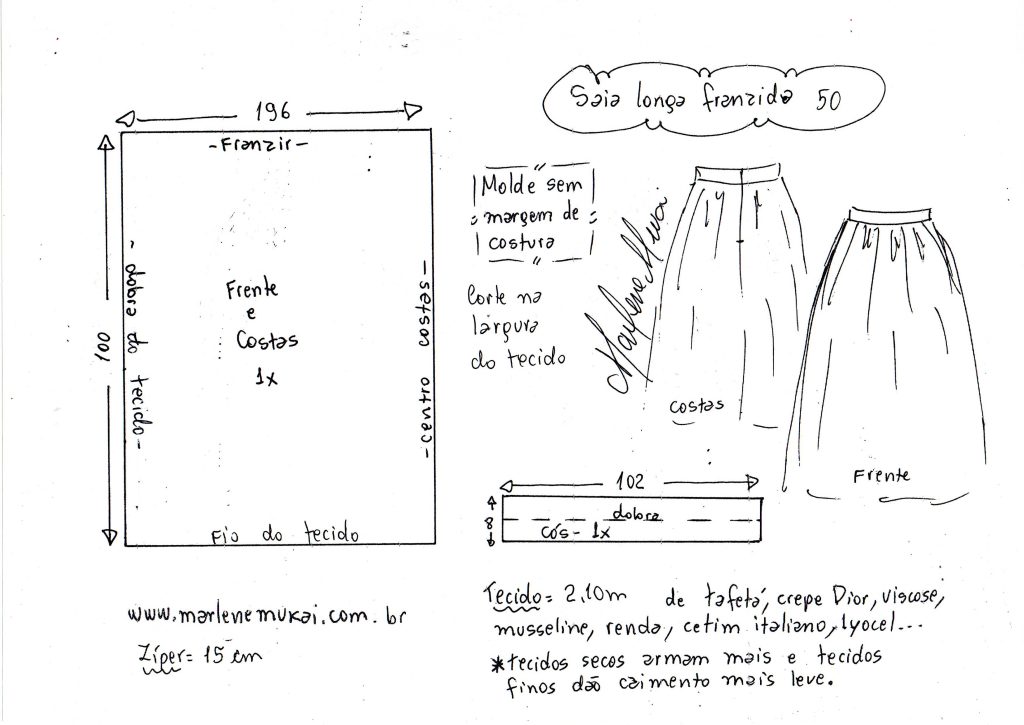 Saia longa franzida 50
196
-Franzir-
100
-dobra do tecido-
Frente
e
Costas
1x
-centro costas-
Fio do tecido
Molde sem
margem de
costura
Corte na
largura
do tecido
Marlene Mukai
costas
Frente
102
8
dobra
Cós- 1x
www.marlenemukai.com.br
Zíper= 15 cm
Tecido= 2.10m de tafetá, crepe Dior, viscose,
musseline, renda, cetim italiano, lyocel...
*tecidos secos armam mais e tecidos
finos dão caimento mais leve.